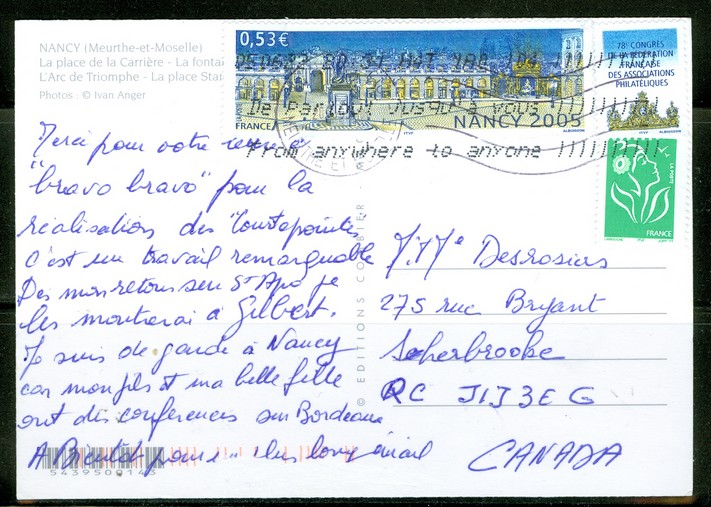 NANCY (Meurthe-et-Moselle)
La place de la Carrière - La fontai
L'Arc de Triomphe - La place Stan
Photos : © Ivan Anger
0,53€
De partout jusqu'à vous
FRANCE
NANCY 2005
From anywhere to anyone
78e CONGRÈS
DE LA FÉDÉRATION
FRANÇAISE
DES ASSOCIATIONS
PHILATÉLIQUES
LA POSTE
FRANCE
Merci pour votre
"bravo bravo" pour la
réalisation des "Courtepointes"
c'est un travail remarquable
Dès mon retour sur St Apo je
les montrerai à Gilbert.
Je suis de garde à Nancy
car mon fils et ma belle fille
ont des conférences sur Bordeaux
A Bientôt pour plus long email
© EDITIONS CORBIER
M. Me Desrosiers
275 rue Bryant
Scherbrooke
QC J1J3E6
CANADA
5439500143